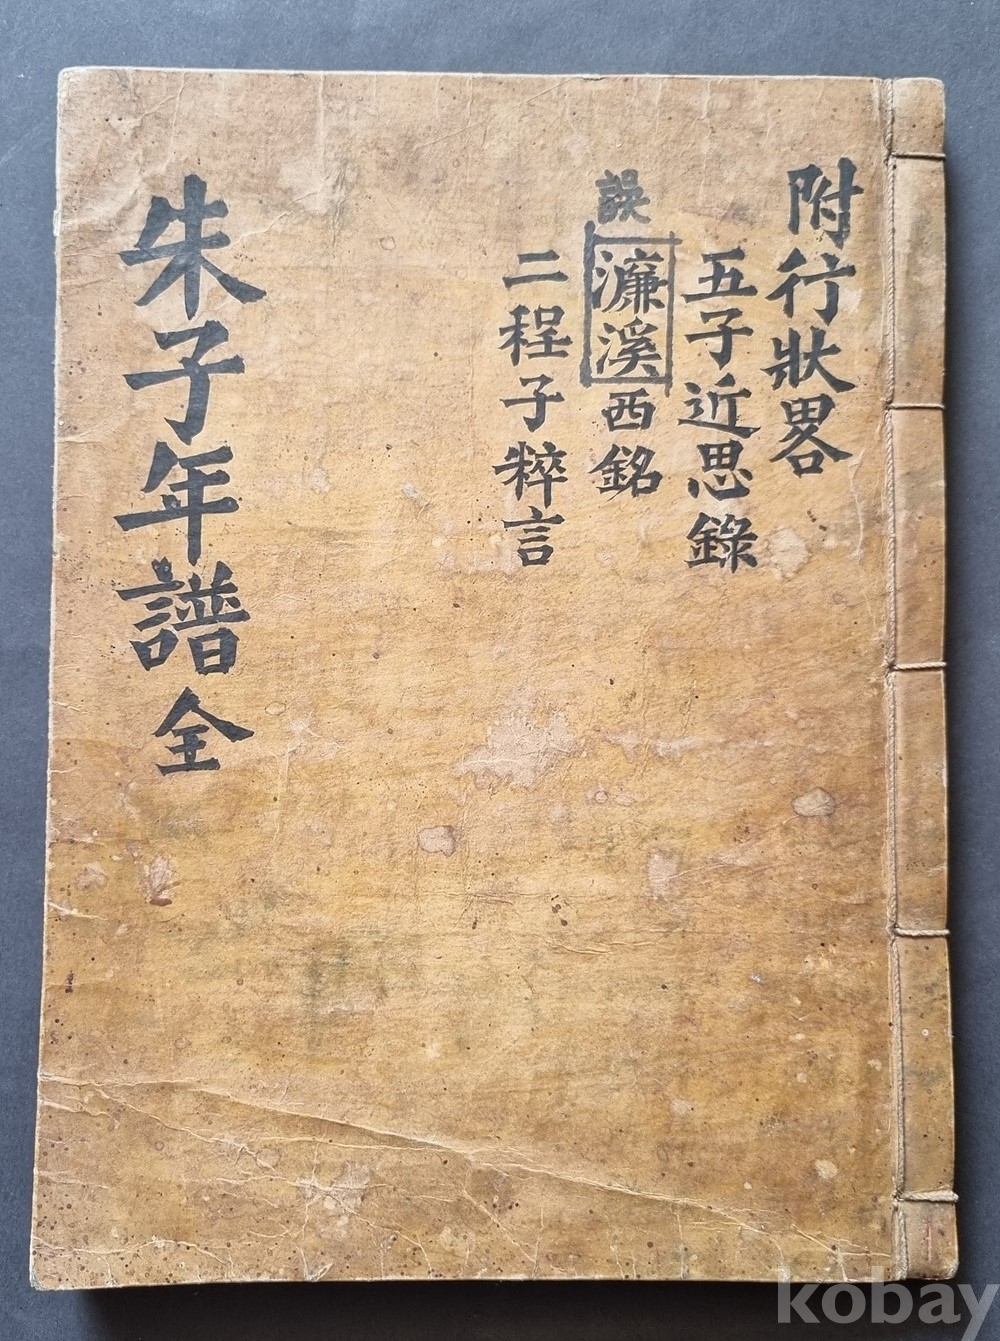 附行狀畧
五子近思錄
誤
濂溪西銘
二程子粹言
朱子年譜全
kobay